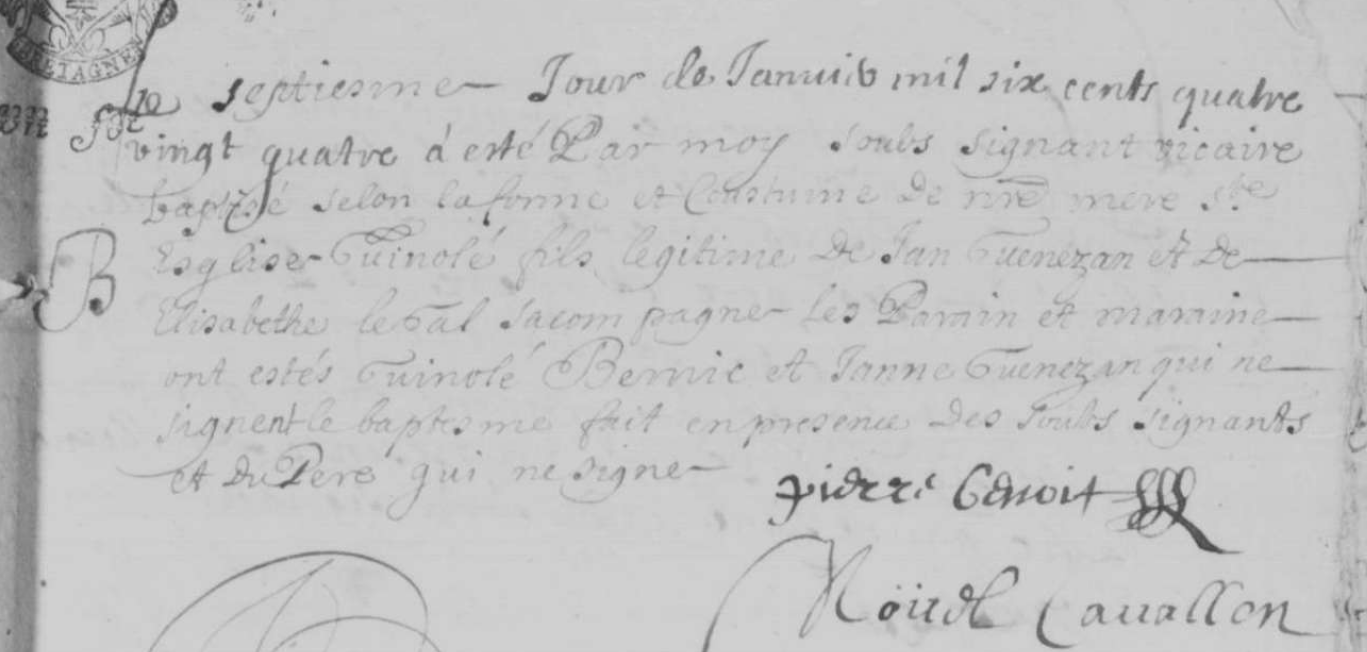 BRETAGNE
le septiesme Jour de Januië mil six cents quatre
vingt quatre à esté Par moy soubs signant vicaire
baptisé selon la forme et Coustume de nre mere ste
B
Esglise Guinolé fils legitime de Jan Guenezan et de
Elisabethe le Gal sa compagne Les Parain et maraine
ont estés Guinolé Bernic et Janne Guenezan qui ne
signent le baptesme fait en presence des soubs signants
et du Pere qui ne signe
pierre Benoit
Nöüel Cavallon